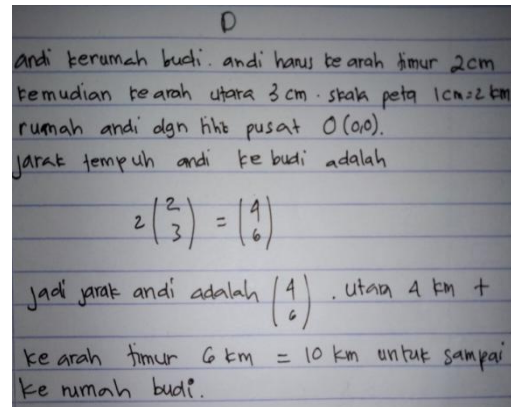 D
andi kerumah budi. andi harus ke arah timur 2cm
kemudian ke arah utara 3 cm. skala peta 1cm=2 km
rumah andi dgn titik pusat O (0,0).
jarak tempuh andi ke budi adalah
2 (2 3) = (4 6)
jadi jarak andi adalah (4 6). utara 4 km +
ke arah timur 6 km = 10 km untuk sampai
ke rumah budi.